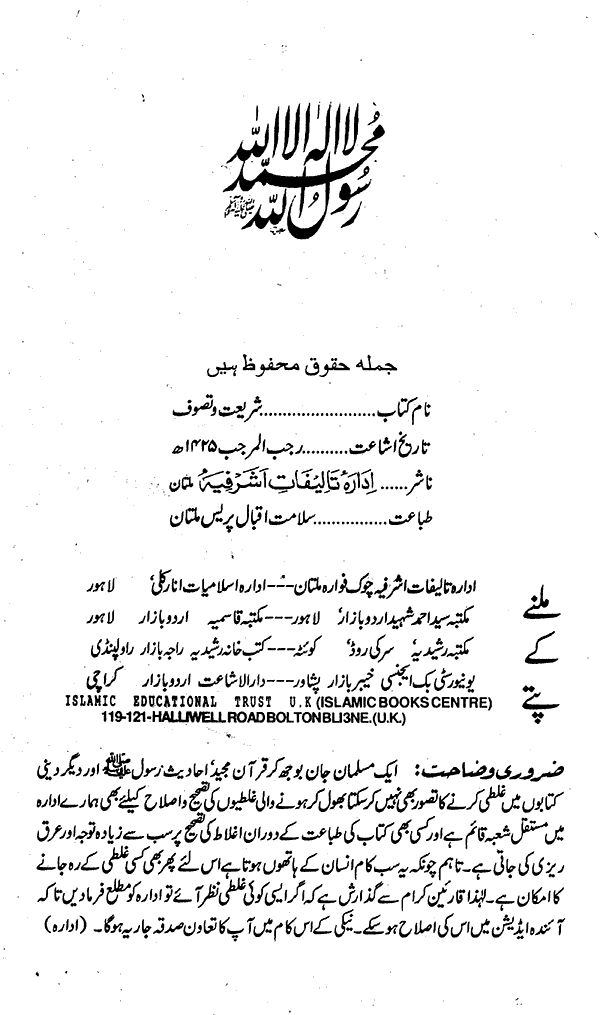 لا الہ الا اللہ
محمد
رسول اللہ ﷺ
جملہ حقوق محفوظ ہیں
نام کتاب........................شریعت و تصوف
تاریخ اشاعت..........رجب المرجب ۱۴۲۵ھ
ناشر......ادارۂ تالیفات اشرفیہ ملتان
طباعت................سلامت اقبال پریس ملتان
ملنے کے پتے
ادارہ تالیفات اشرفیہ چوک فوارہ ملتان---ادارہ اسلامیات انارکلی' لاہور
مکتبہ سید احمد شہید اردو بازار' لاہور---مکتبہ قاسمیہ اردو بازار لاہور
مکتبہ رشیدیہ' سرکی روڈ' کوئٹہ---کتب خانہ رشیدیہ راجہ بازار راولپنڈی
یونیورسٹی بک ایجنسی خیبر بازار پشاور---دارالاشاعت اردو بازار کراچی
ISLAMIC EDUCATIONAL TRUST U.K (ISLAMIC BOOKS CENTRE)
119-121-HALLIWELL ROAD BOLTON BLI3NE.(U.K.)
ضروری وضاحت: ایک مسلمان جان بوجھ کر قرآن مجید' احادیث رسول ﷺ اور دیگر دینی
کتابوں میں غلطی کرنے کا تصور بھی نہیں کر سکتا بھول کر ہونے والی غلطیوں کی تصحیح و اصلاح کیلئے بھی ہمارے ادارہ
میں مستقل شعبہ قائم ہے اور کسی بھی کتاب کی طباعت کے دوران اغلاط کی تصحیح پر سب سے زیادہ توجہ اور عرق
ریزی کی جاتی ہے۔ تاہم چونکہ یہ سب کام انسان کے ہاتھوں ہوتا ہے اس لئے پھر بھی کسی غلطی کے رہ جانے
کا امکان ہے۔ لہٰذا قارئین کرام سے گذارش ہے کہ اگر ایسی کوئی غلطی نظر آئے تو ادارہ کو مطلع فرما دیں تا کہ
آئندہ ایڈیشن میں اس کی اصلاح ہو سکے۔ نیکی کے اس کام میں آپ کا تعاون صدقہ جاریہ ہو گا۔ (ادارہ)